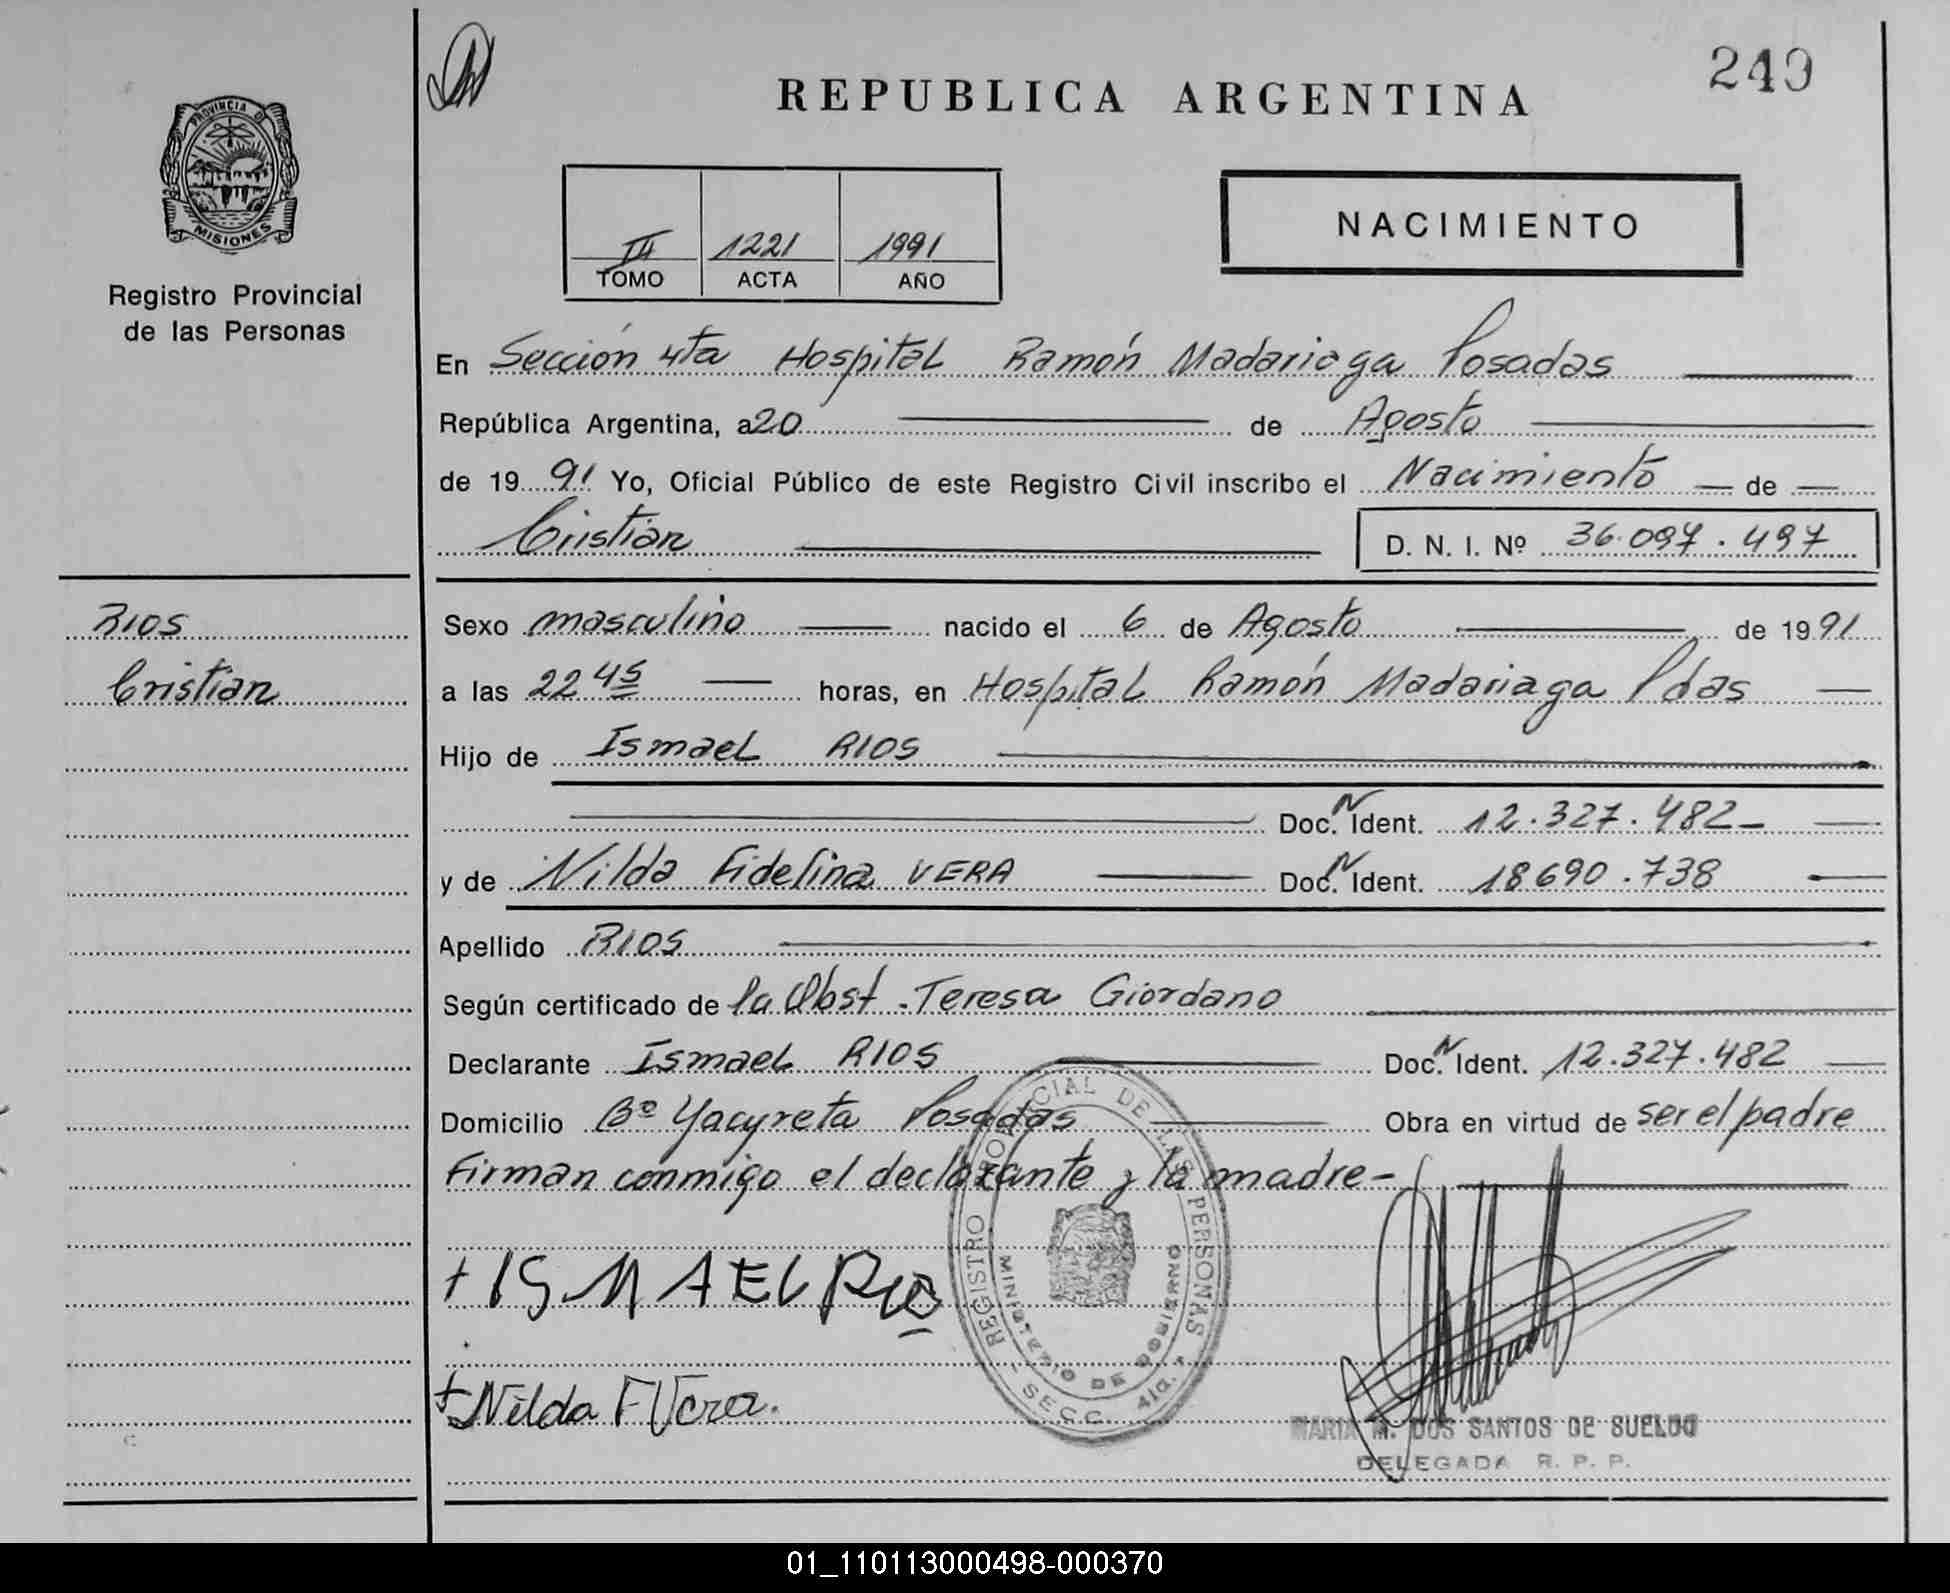 249
REPUBLICA ARGENTINA
PROVINCIA D
MISIONES
Registro Provincial
de las Personas
III 1221 1991
TOMO ACTA AÑO
NACIMIENTO
En Sección 4ta Hospital Ramón Madariaga Posadas
República Argentina, a 20 de Agosto
de 19 91 Yo, Oficial Público de este Registro Civil inscribo el Nacimiento de
Cristian D. N. I. Nº 36.097.497
RIOS
Cristian
Sexo masculino nacido el 6 de Agosto de 19 91
a las 22 45 horas, en Hospital Ramón Madariaga Pdas
Hijo de Ismael RIOS
Doc. N Ident. 12.327.482
y de Nilda Fidelina VERA Doc. N Ident. 18690.738
Apellido RIOS
Según certificado de la Obst. Teresa Giordano
Declarante Ismael RIOS Doc. N Ident. 12.327.482
Domicilio Bº Yacyreta Posadas Obra en virtud de ser el padre
Firman conmigo el declarante y la madre-
REGISTRO PROVINCIAL DE LAS PERSONAS - SECC. 4ta.
MINISTERIO DE GOBIERNO
+ ISMAEL Rio
+ Nilda F Vera.
MARIA M. DOS SANTOS DE SUELDO
DELEGADA R. P. P.
01_110113000498-000370